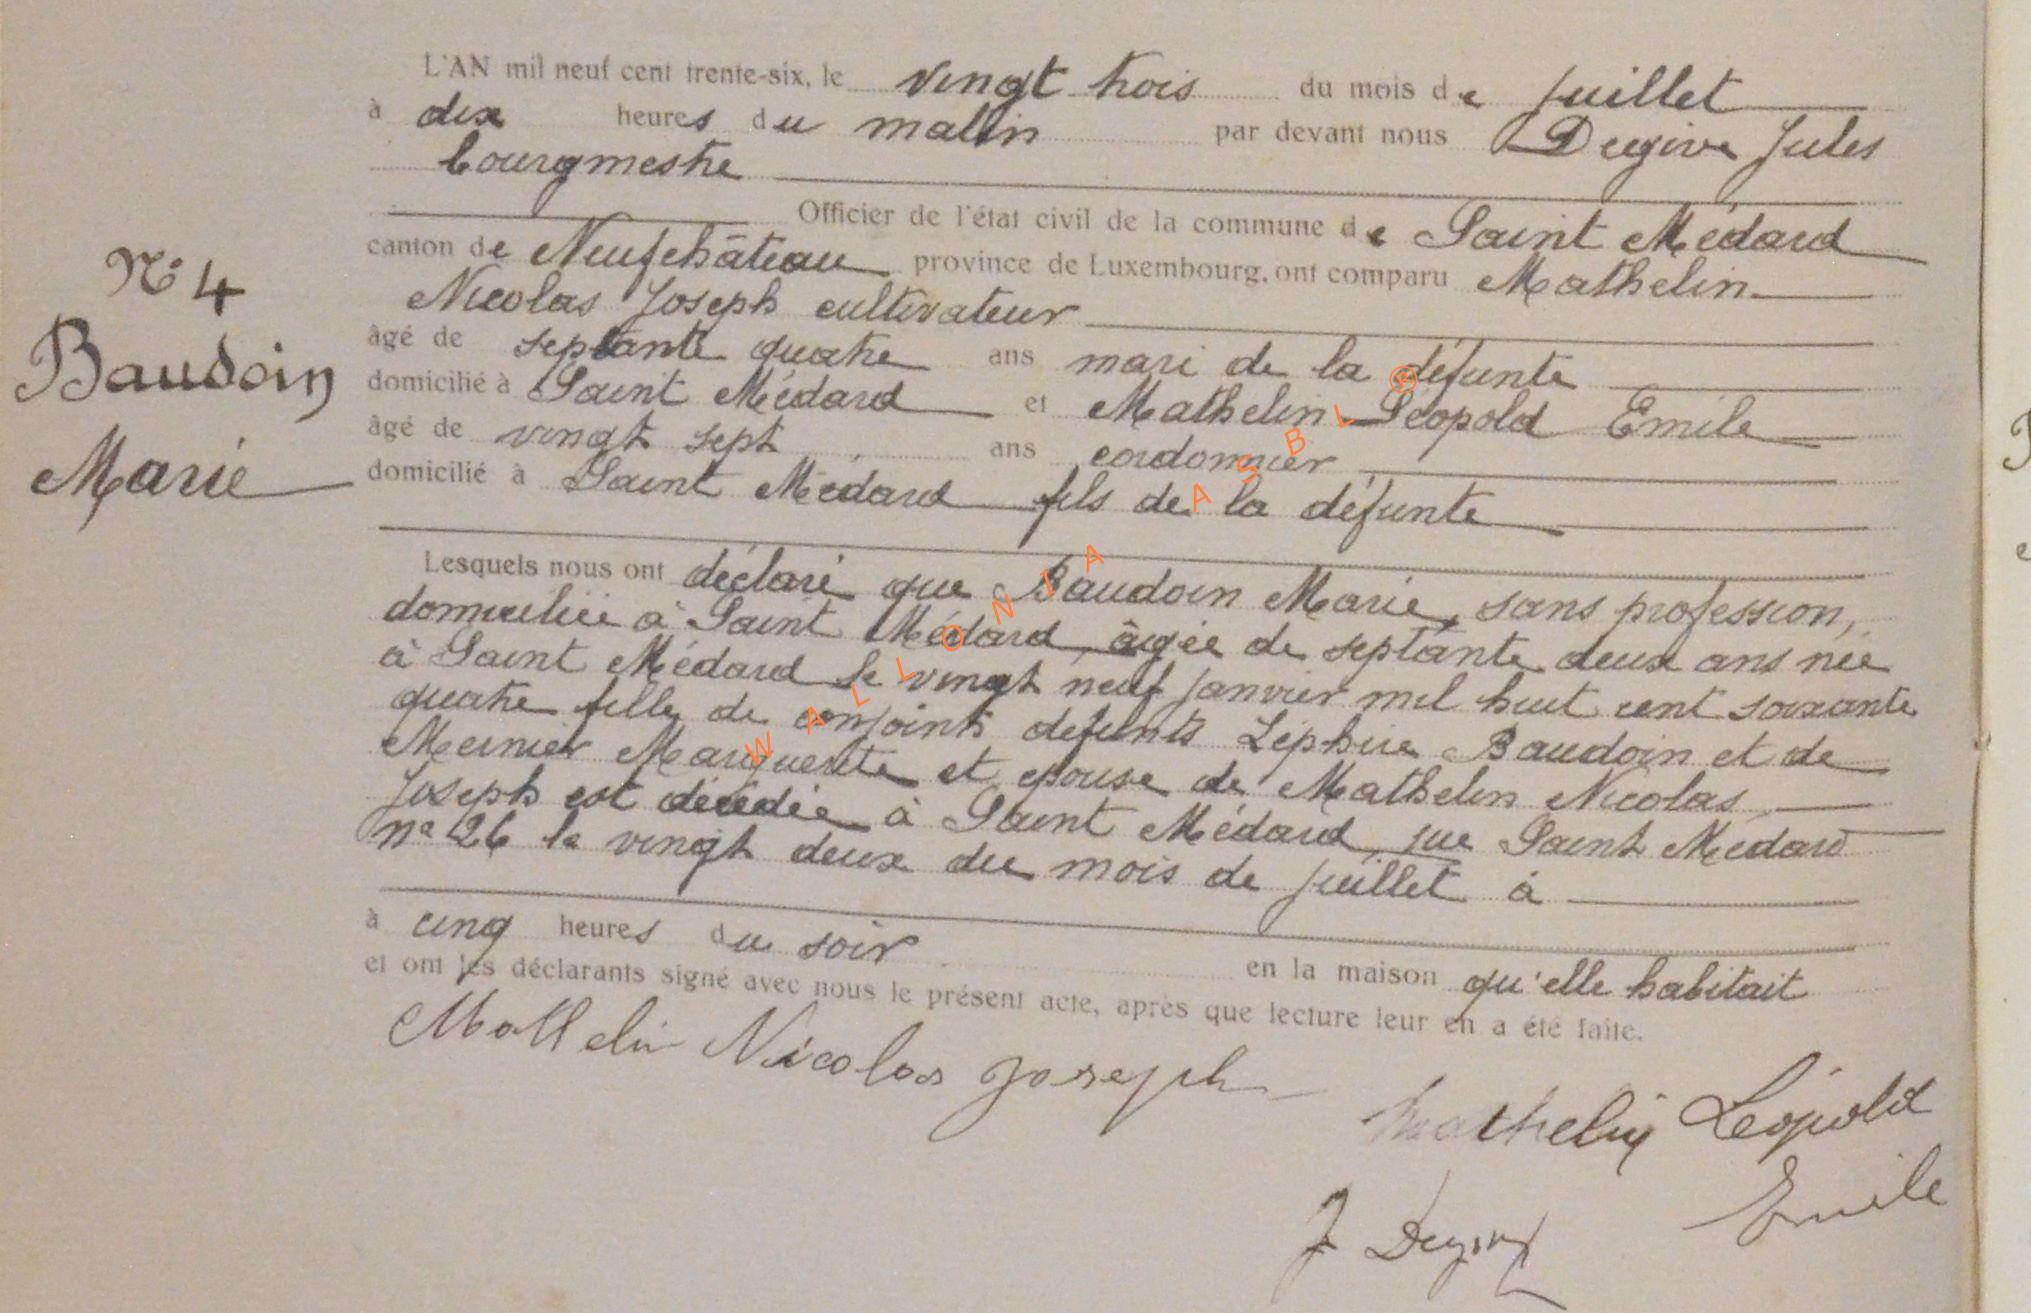 L'AN mil neuf cent trente-six, le vingt trois du mois de juillet
à dix heures du matin par devant nous Dugive Jules
bourgmestre
Officier de l'état civil de la commune de Saint Médard
canton de Neufchâteau province de Luxembourg, ont comparu Mathelin
Nicolas Joseph cultivateur
âgé de septante quatre ans mari de la défunte
domicilié à Saint Médard et Mathelin Léopold Emile
âgé de vingt sept ans cordonnier
domicilié à Saint Médard fils de la défunte
N° 4
Baudoin
Marie
Lesquels nous ont déclaré que Baudoin Marie, sans profession,
domiciliée à Saint Médard, âgée de septante deux ans née
à Saint Médard le vingt neuf janvier mil huit cent soixante
quatre fille de conjoints défunts Zéphire Baudoin et de
Mernier Marguerite et épouse de Mathelin Nicolas
Joseph est décédée à Saint Médard, rue Saint Médard
n° 26 le vingt deux du mois de juillet à
à cinq heures du soir en la maison qu'elle habitait
et ont les déclarants signé avec nous le présent acte, après que lecture leur en a été faite.
Mathelin Nicolas Joseph
Mathelin Léopold
Emile
J Dugive
WALLONIA ASBL ®